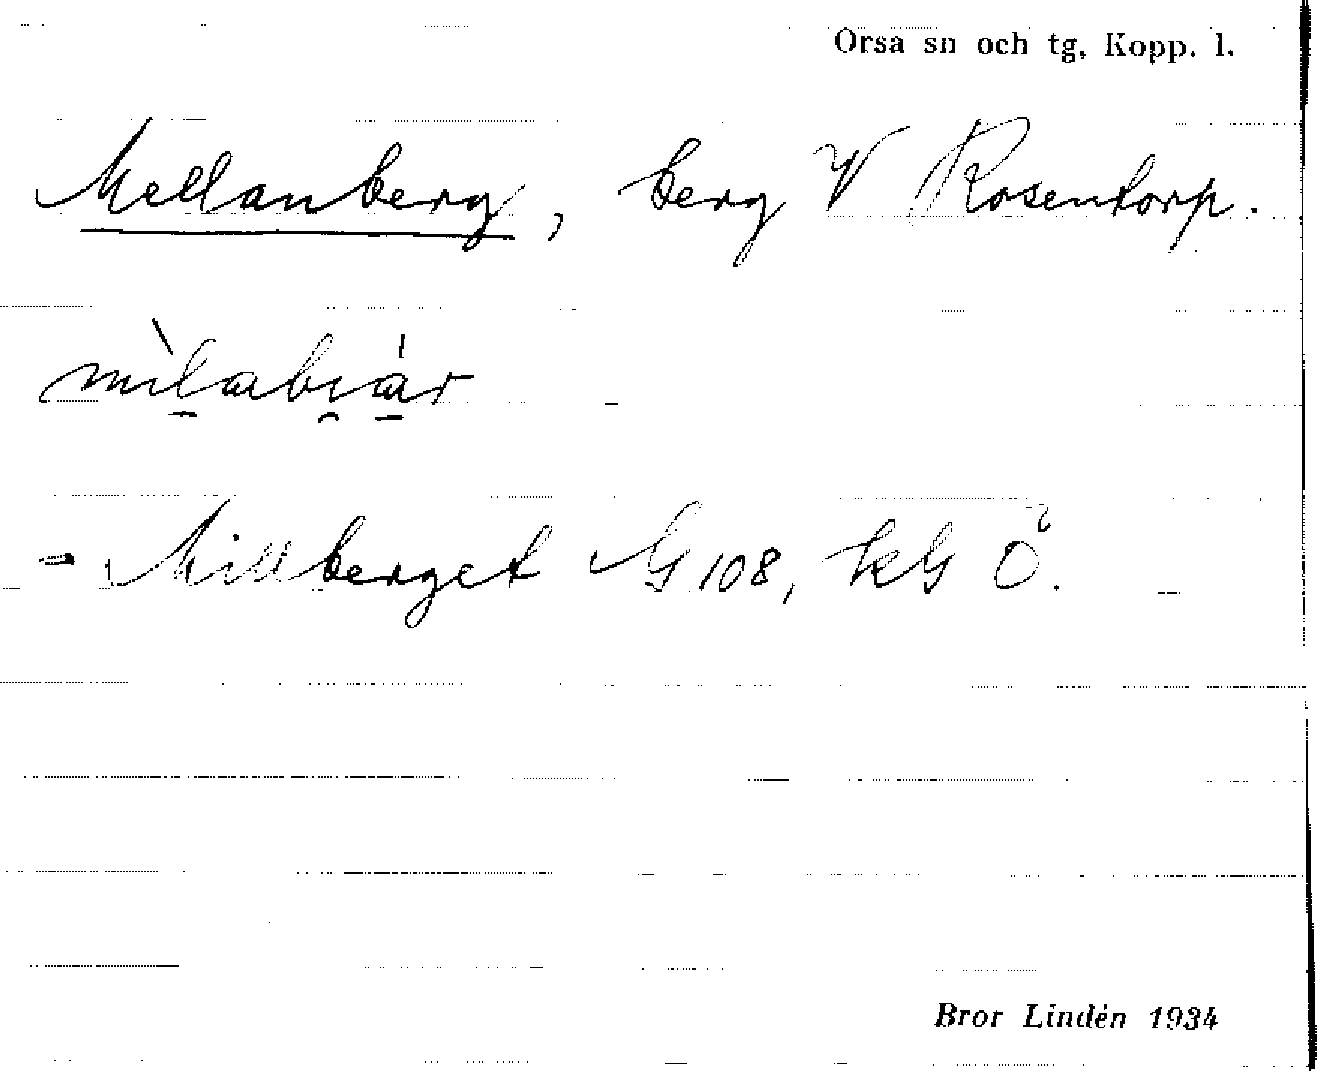 Orsa sn och tg, Kopp. l.
Mellanberg, berg V Rosentorp.
mìlabiár
- Millberget G 108, kG Ö.
Bror Lindén 1934